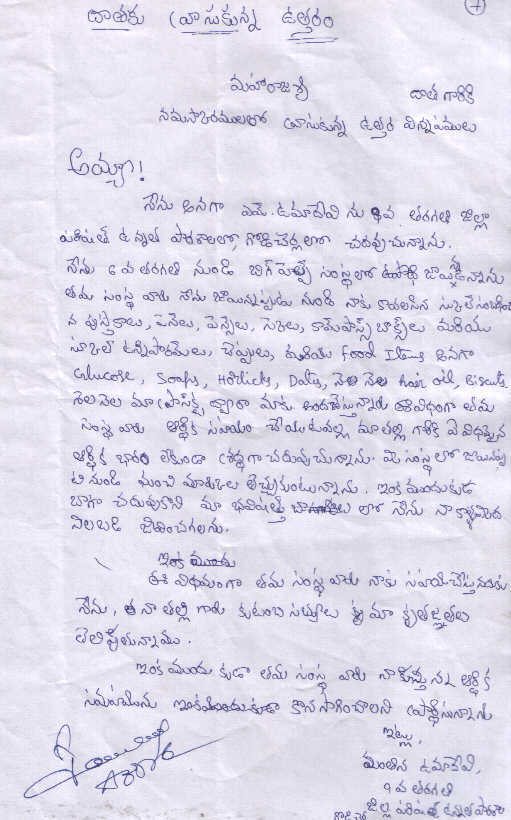 దాతకు వ్రాసుకున్న ఉత్తరం
మహారాజశ్రీ దాత గారికి
నమస్కారములతో వ్రాసుకున్న ఉత్తర విన్నపములు
అయ్యా!
నేను అనగా ఎమ్. ఉమాదేవి ను 9వ తరగతి జిల్లా
పరిషత్ ఉన్నత పాఠశాలలో, గోడిచెర్లలో చదువుచున్నాను.
నేను 6 వ తరగతి నుండి బిగ్ హెల్ప్ సంస్థలో
తమ సంస్థ వారు నేను జాయిన్నప్పుడు నుండి నాకు కావలసిన
న పుస్తకాలు, పెనులు, పెన్సిలు, స్కేలు, కామ్ పాస్స్ బాక్స్‌లు మరియు
స్కూల్ ఉన్నిఫారములు, చెప్పులు, మరియు Food Items అనగా
Glucose, Soaps, Horlicks, Dalts, నెల నెల hair oil, Biscuits
నెలనెల మా ద్వారా మాకు అందచేస్తున్నారు ఈవిధంగా తమ
సంస్థ వారు ఆర్థిక సహాయం చేయుటవల్ల మా తల్లి గారికి ఏ విధమైన
ఆర్థిక భారం లేకుండా శ్రద్ధగా చదువుచున్నాను. మీ సంస్థలో జాయిన్నప్ప
టి నుండి మంచి మార్కులు తెచ్చుకుంటున్నాను. ఇంక ముందుకుడ
బాగా చదువుకొని మా భవిష్యత్తు లో నేను నా కాళ్ళమీద
నిలబడి జీవించగలను.
ఇంక ముందు
ఈ విధముగా తమ సంస్థ వారు నాకు సహాయచేస్తునందుకు
నేను, నా తల్లి గారు కుటుంబ సభ్యులు మా కృతజ్ఞతలు
తెలిపుతున్నాము.
ఇంక ముందు కుడా తమ సంస్థ వారు నాకిస్తున్న ఆర్థిక
సహాయమును ఇంకముందుకుడా కొనసాగించాలని ప్రార్థిస్తున్నాను
ఇట్లు,
ఉమాదేవి,
9 వ తరగతి
జిల్లా పరిషత్ ఉన్నత పాఠశాల